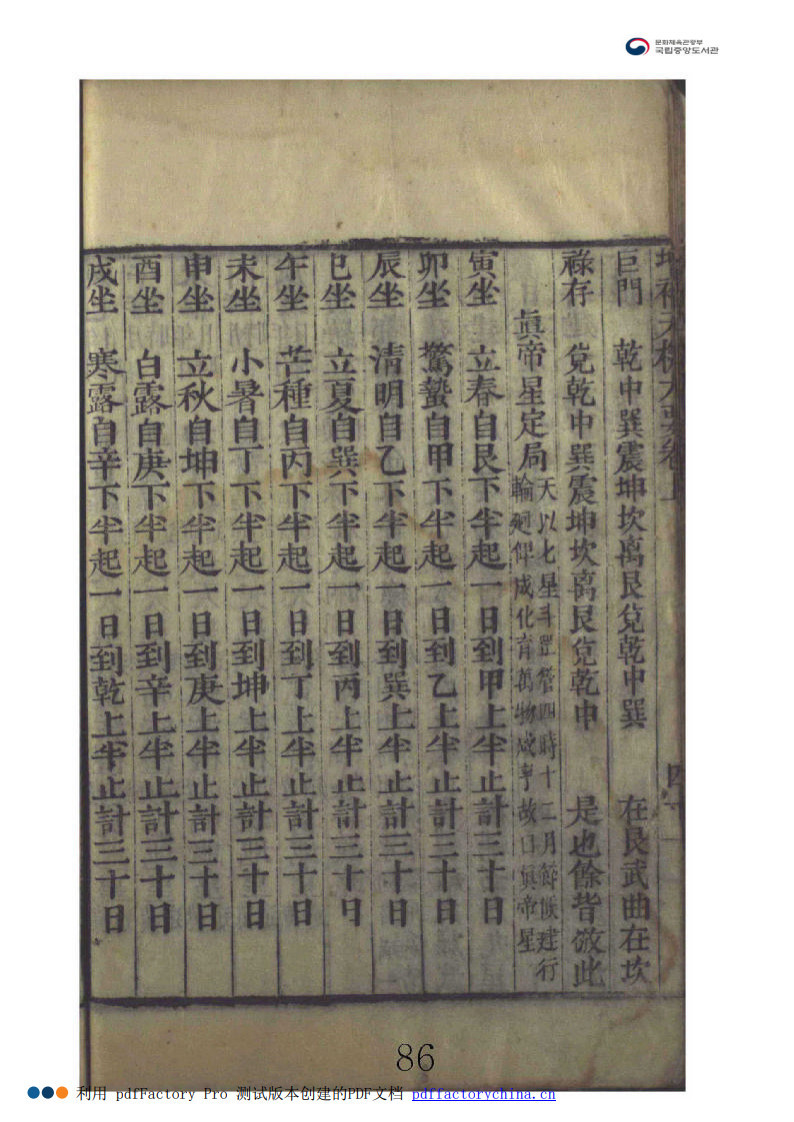 문화체육관광부
국립중앙도서관
巨門 乾中巽震坤坎离艮兌乾中巽 在艮武曲在坎
祿存 兌乾中巽震坤坎离艮兌乾中 是也餘皆倣此
眞帝星定局 天以七星斗罡管四時十二月節候建行
輪廻仰成化育萬物成亨故曰眞帝星
寅坐 立春自艮下半起一日到甲上半止計三十日
卯坐 驚蟄自甲下半起一日到乙上半止計三十日
辰坐 清明自乙下半起一日到巽上半止計三十日
巳坐 立夏自巽下半起一日到丙上半止計三十日
午坐 芒種自丙下半起一日到丁上半止計三十日
未坐 小暑自丁下半起一日到坤上半止計三十日
申坐 立秋自坤下半起一日到庚上半止計三十日
酉坐 白露自庚下半起一日到辛上半止計三十日
戌坐 寒露自辛下半起一日到乾上半止計三十日
86
利用 pdfFactory Pro 测试版本创建的PDF文档 pdffactorychina.cn